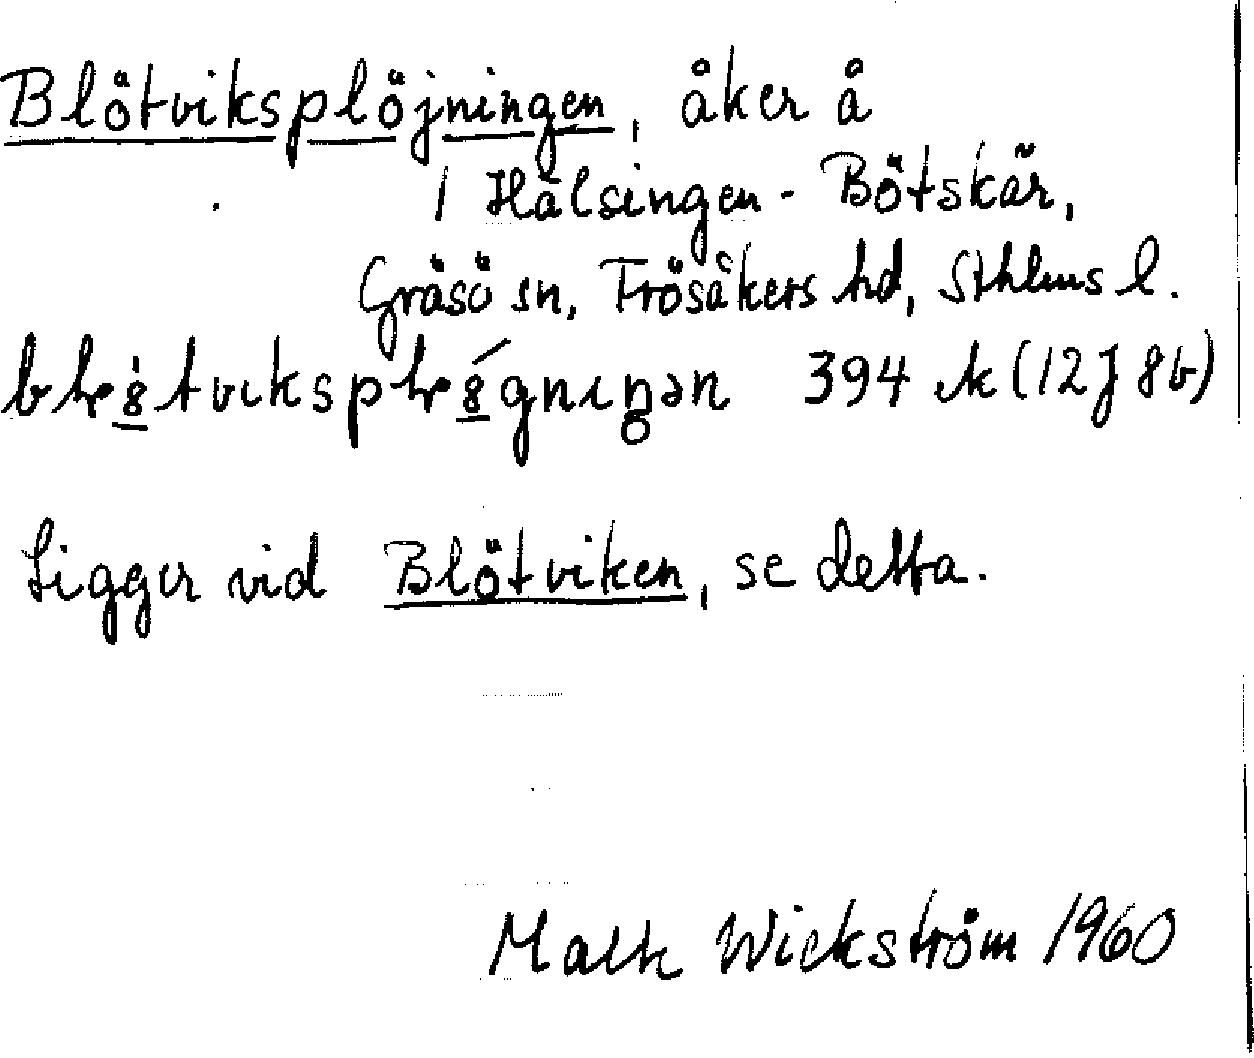 Blötviksplöjningen, åker å
1 Hålsingen - Bötskär,
Gräsö sn, Frösåkers hd, Sthlms l.
394 ek (12J 8b)
Ligger vid Blötviken, se detta.
Wickström 1960